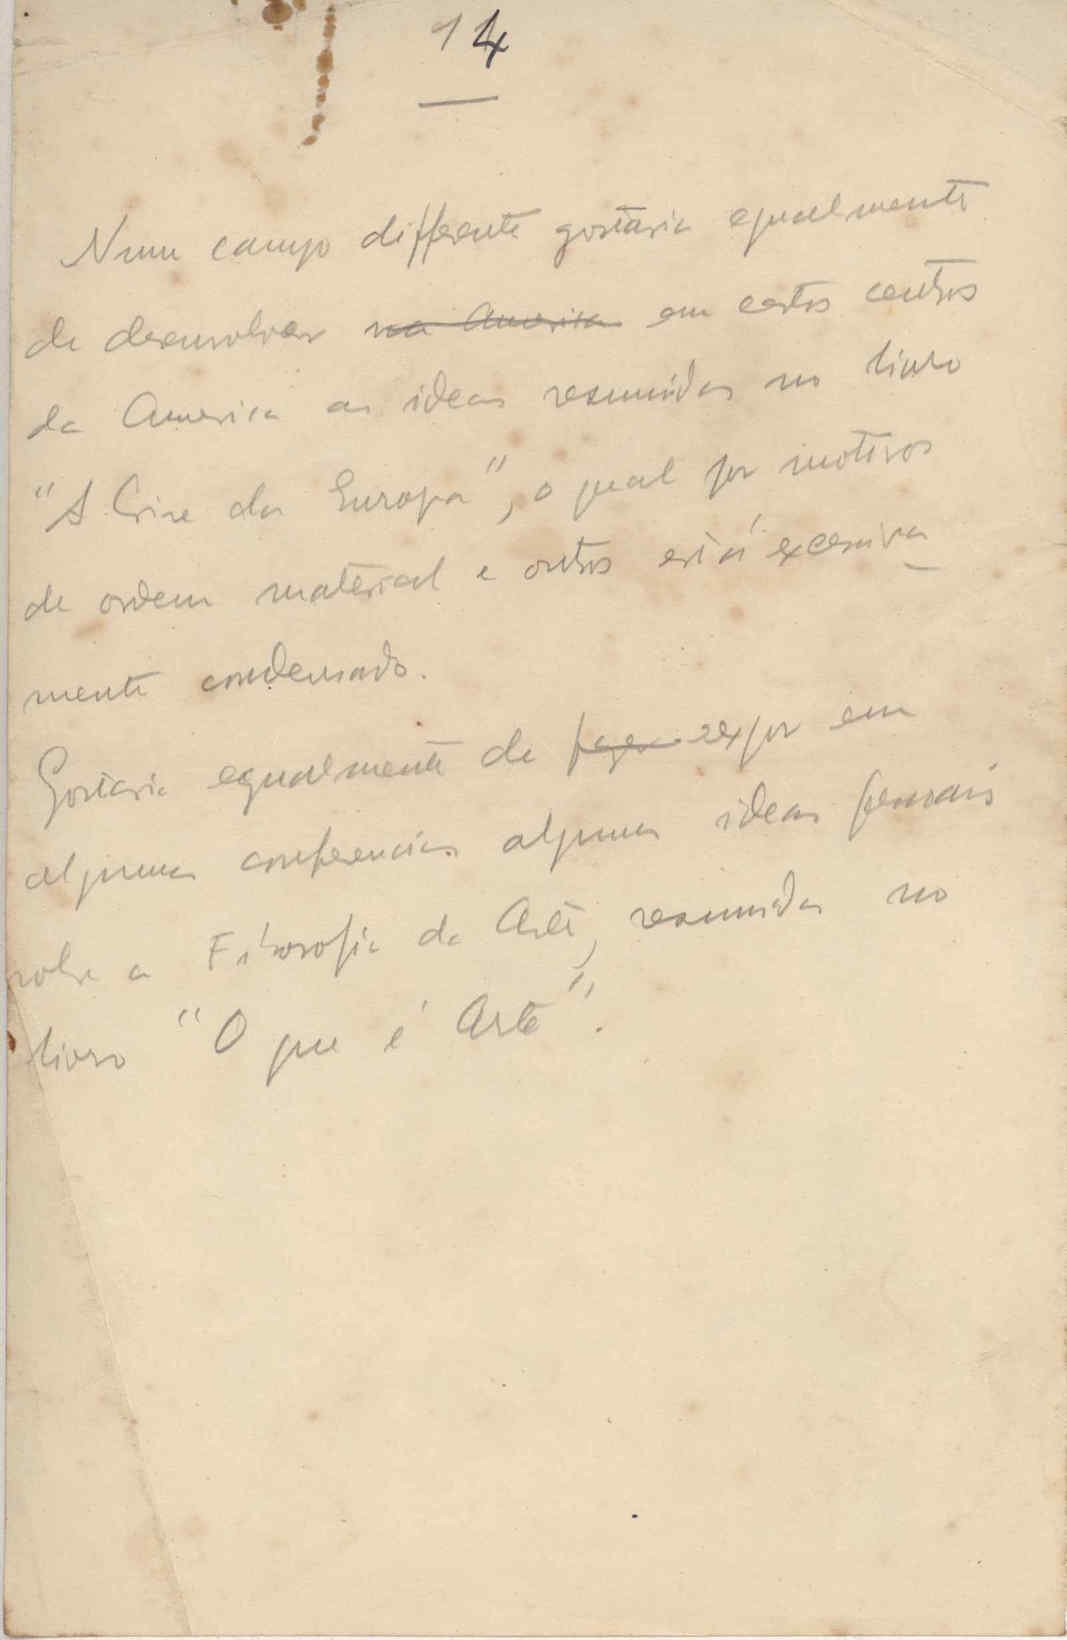 14
Num campo differente gostaria egualmente
de desenvolver na America em certos centros
da America as ideas resumidas no livro
"A Crise da Europa", o qual por motivos
de ordem material e outros está excessiva_
mente condensado.
Gostaria egualmente de fazer expor em
algumas conferencias algumas ideas pessoais
sobre a Filosofia da Arte, resumidas no
livro "O que é Arte".